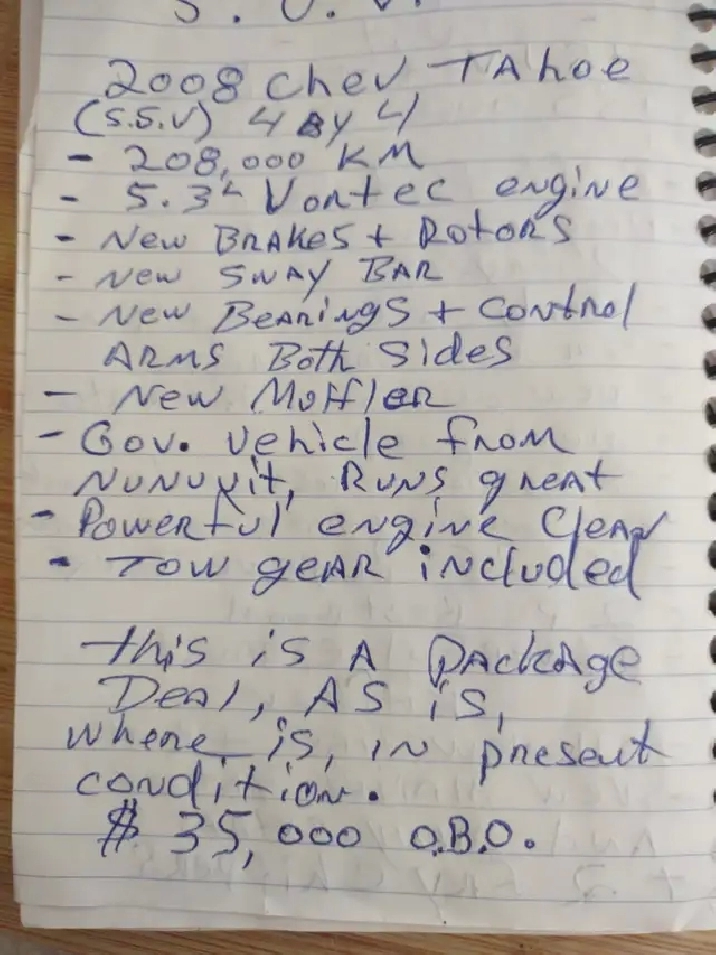 S.U.V.
2008 Chev, TAhoe
(S.S.V) 4 By 4
- 208,000 KM
- 5.3L Vortec engine
- New BRAKES + Rotors
- New SWAY BAR
- New Bearings + Control
ARMS Both Sides
- New Moffler
- Gov. vehicle from
Nunuvit, Runs great
- Powerful engine Clean
- Tow geAR included
this is A Package
Deal, AS is,
where is, in present
condition.
$ 35,000 O.B.O.